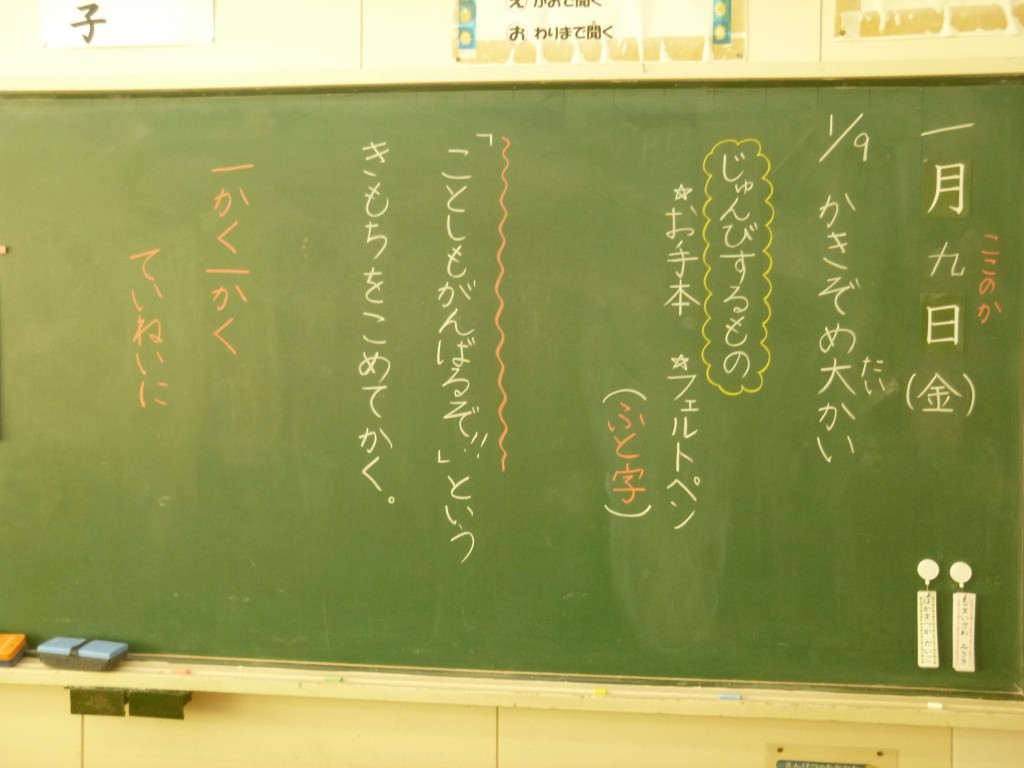 子
え かおで聞く
お わりまで聞く
一月九日(金)
ここのか
1/9 かきぞめ大かい
たい
じゅんびするもの
☆お手本 ☆フェルトペン
(ふと字)
「ことしもがんばるぞ!!」という
きもちをこめてかく。
一かく一かく
ていねいに